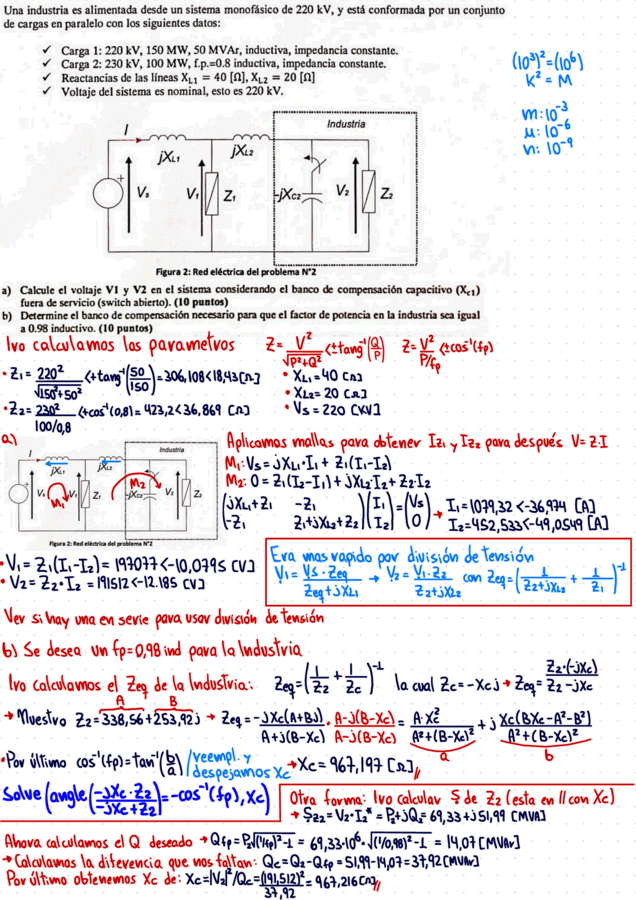 Una industria es alimentada desde un sistema monofásico de 220 kV, y está conformada por un conjunto
de cargas en paralelo con los siguientes datos:
✓ Carga 1: 220 kV, 150 MW, 50 MVAr, inductiva, impedancia constante.
✓ Carga 2: 230 kV, 100 MW, f.p.=0.8 inductiva, impedancia constante.
✓ Reactancias de las líneas X_L1 = 40 [Ω], X_L2 = 20 [Ω]
✓ Voltaje del sistema es nominal, esto es 220 kV.
(10³)²=(10⁶)
K² = M
m:10⁻³
μ:10⁻⁶
n:10⁻⁹
I
jX_L1
jX_L2
Industria
V_s
V₁
Z₁
-jX_C2
V₂
Z₂
Figura 2: Red eléctrica del problema N°2
a) Calcule el voltaje V1 y V2 en el sistema considerando el banco de compensación capacitivo (X_c1)
fuera de servicio (switch abierto). (10 puntos)
b) Determine el banco de compensación necesario para que el factor de potencia en la industria sea igual
a 0.98 inductivo. (10 puntos)
1ro calculamos los parametros Z = V²/√(P²+Q²) <±tang⁻¹(Q/P) Z = V²/(P/fp) <±cos⁻¹(fp)
• Z₁ = 220²/√(150²+50²) <+tang⁻¹(50/150) = 306,108<18,43[Ω]
• Z₂ = 230²/(100/0,8) <+cos⁻¹(0,8) = 423,2<36,869 [Ω]
• X_L1 = 40 [Ω]
• X_L2 = 20 [Ω]
• Vs = 220 [KV]
a)
I
jX_L1
jX_L2
Industria
V_s
M₁
V₁
Z₁
M₂
-jX_C2
V₂
Z₂
Figura 2: Red eléctrica del problema N°2
Aplicamos mallas para obtener I_Z1 y I_Z2 para después V=Z·I
M₁: Vs = jX_L1·I₁ + Z₁(I₁-I₂)
M₂: 0 = Z₁(I₂-I₁)+jX_L2·I₂+Z₂·I₂
(jX_L1+Z₁ -Z₁)(I₁)=(Vs) → I₁=1079,32<-36,974 [A]
(-Z₁ Z₁+jX_L2+Z₂)(I₂) (0) I₂=452,533<-49,0549 [A]
• V₁ = Z₁(I₁-I₂) = 197077<-10,0795 [V]
• V₂ = Z₂·I₂ = 191512<-12.185 [V]
Era mas rapido por división de tensión
V₁ = Vs·Zeq/(Zeq+jX_L1) → V₂ = V₁·Z₂/(Z₂+jX_L2) con Zeq=(1/(Z₂+jX_L2) + 1/Z₁)⁻¹
Ver si hay una en serie para usar división de tensión
b) Se desea un fp=0,98 ind para la Industria
1ro calculamos el Zeq de la Industria: Zeq=(1/Z₂ + 1/Zc)⁻¹ la cual Zc=-Xcj → Zeq= Z₂·(-jXc)/(Z₂-jXc)
A B
→ Nuestro Z₂=338,56+253,92j → Zeq= -jXc(A+Bj)/(A+j(B-Xc)) · (A-j(B-Xc))/(A-j(B-Xc)) = A·Xc²/(A²+(B-Xc)²) + j Xc(BXc-A²-B²)/(A²+(B-Xc)²)
a b
• Por último cos⁻¹(fp)=tan⁻¹(b/a) /reempl. y despejamos Xc → Xc = 967,197 [Ω]//
Solve(angle((-jXc·Z₂)/(-jXc+Z₂))=-cos⁻¹(fp),Xc)
Otra forma: 1ro calcular S de Z₂ (esta en // con Xc)
→ S_Z2 = V₂·I₂* = P₂+jQ₂ = 69,33+j51,99 [MVA]
Ahora calculamos el Q deseado → Qfp=P₂√((1/fp)²-1) = 69,33·10⁶·√((1/0,98)²-1) = 14,07 [MVAr]
→ Calculamos la diferencia que nos faltan: Qc=Q₂-Qfp=51,99-14,07=37,92[MVAr]
Por último obtenemos Xc de: Xc=|V₂|²/Qc=(191,512)²/37,92 = 967,216[Ω]//